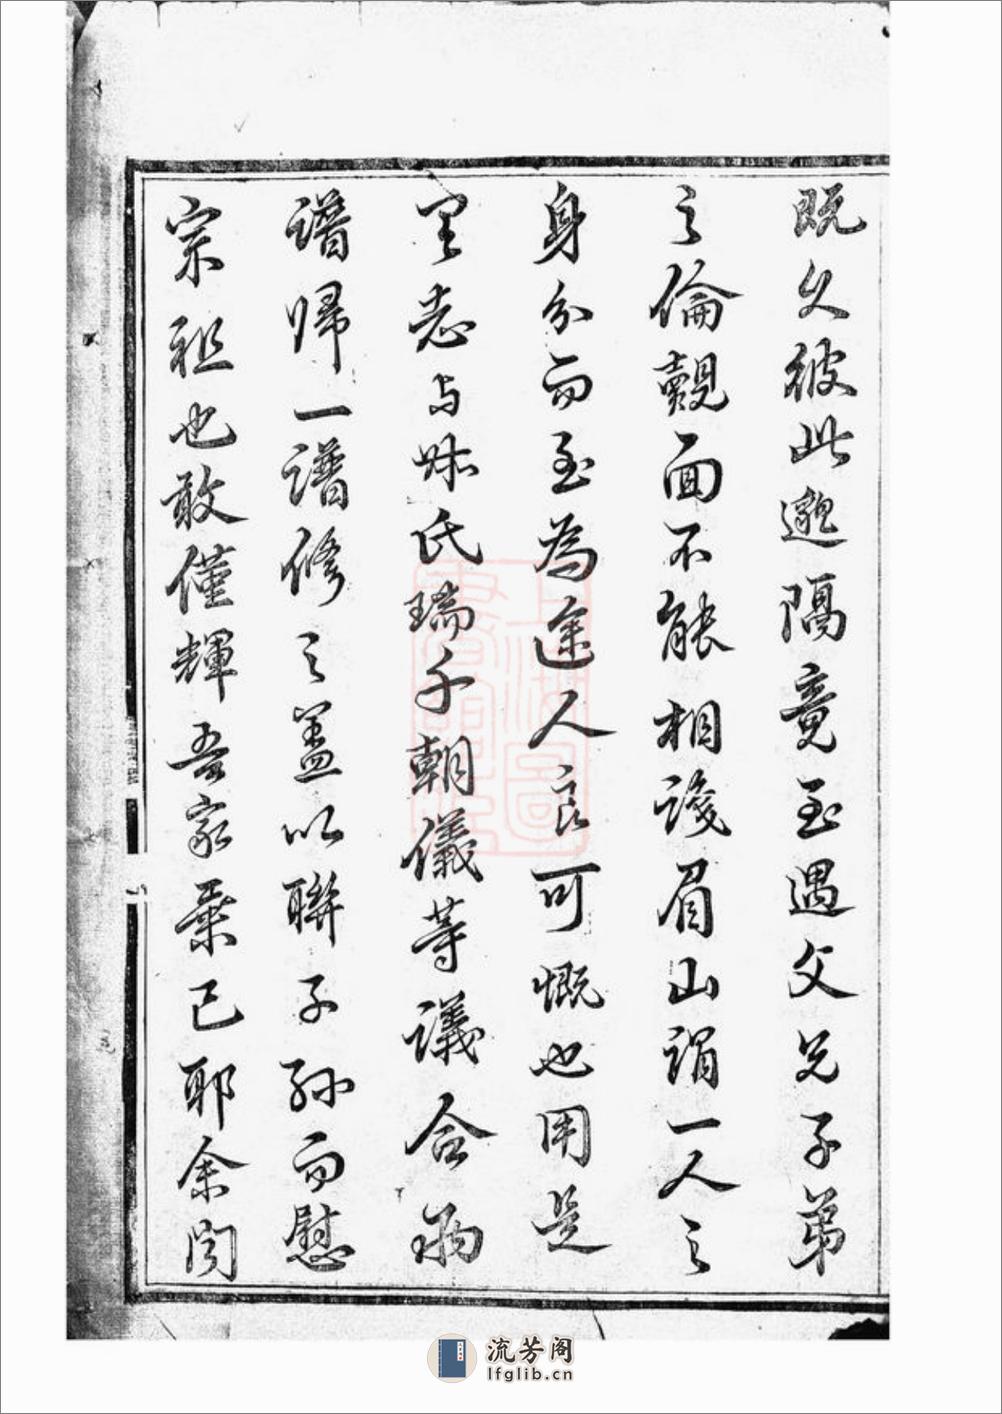 既久彼此邈隔竟至遇父兄子弟
之倫覿面不能相識眉山謂一人之
身分而至為途人良可慨也用是
志与姝氏瑞千朝儀等議合兩
譜歸一譜修之盖以聯子孫而慰
宗祖也敢僅輝吾家乘已耶余閱
上海圖書館藏
流芳阁
lfglib.cn